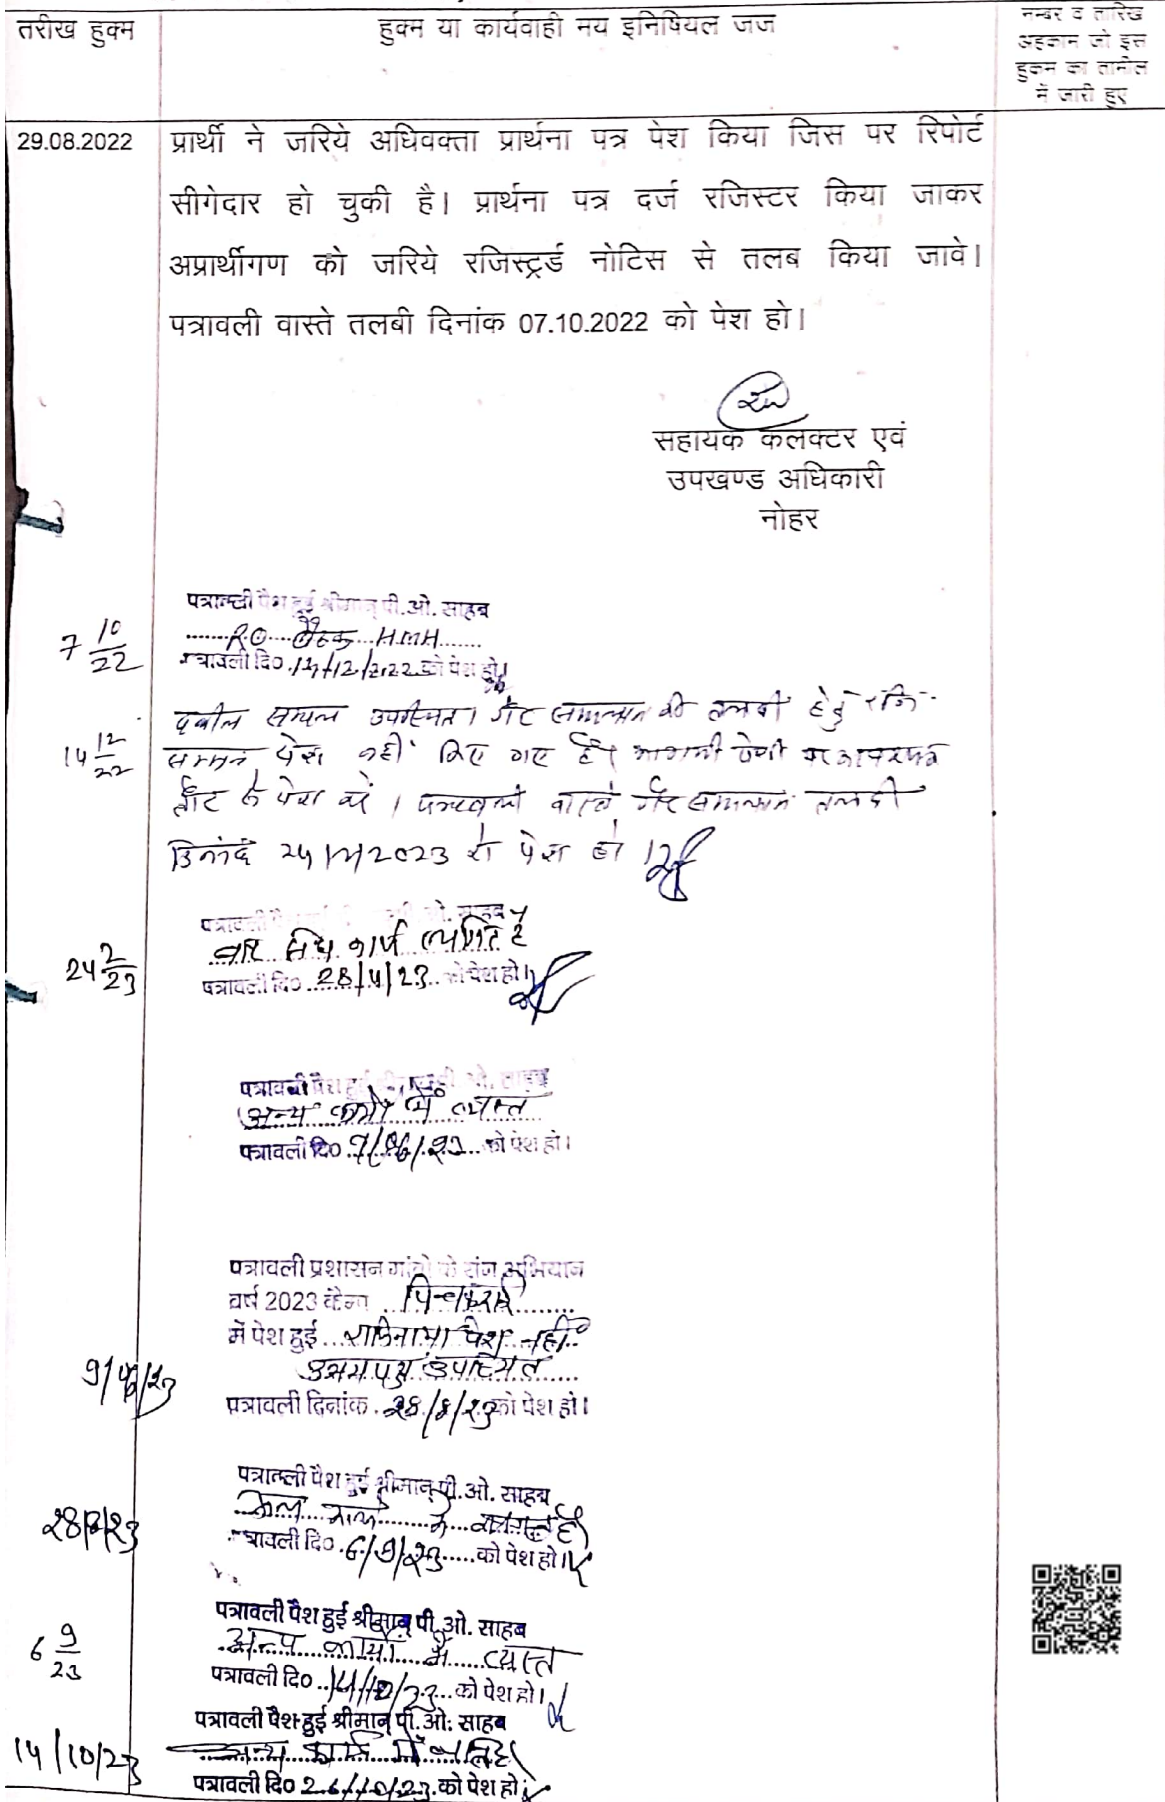 तरीख हुक्म
हुक्म या कार्यवाही मय इनिषियल जज
नम्बर व तारिख
अहकाम जो इस
हुकम का तामील
में जारी हुए
29.08.2022
प्रार्थी ने जरिये अधिवक्ता प्रार्थना पत्र पेश किया जिस पर रिपोर्ट
सीगेदार हो चुकी है। प्रार्थना पत्र दर्ज रजिस्टर किया जाकर
अप्रार्थीगण को जरिये रजिस्ट्रर्ड नोटिस से तलब किया जावे।
पत्रावली वास्ते तलबी दिनांक 07.10.2022 को पेश हो।
सहायक कलक्टर एवं
उपखण्ड अधिकारी
नोहर
7 10/22
पत्रावली पैश हुई श्रीमान् पी.ओ. साहब
बैठक
पत्रावली दि० 14/12/2022 को पेश हो।
14 12/22
उपस्थित। की तलबी हेतु
सम्मन पेश नहीं किए गए हैं। आगामी पेशी पर आवश्यक
पेश करें। पत्रावली वास्ते तलबी
दिनांक को पेश हो।
24 2/23
पत्रावली ओ. साहब
कार्य स्थगित है
पत्रावली दि० 28/4/23 को पेश हो।
पत्रावली पैश हुई ओ. साहब
अन्य कार्यों में व्यस्त
पत्रावली दि० को पेश हो।
पत्रावली प्रशासन गांवो के संग अभियान
वर्ष 2023 कैम्प
में पेश हुई राजीनामा पेश नहीं
उभयपक्ष उपस्थित
9/6/23
पत्रावली दिनांक 28/8/23 को पेश हो।
28/8/23
पत्रावली पैश हुई श्रीमान् पी.ओ. साहब
में
पत्रावली दि० 6/9/23 को पेश हो।
6 9/23
पत्रावली पैश हुई श्रीमान् पी.ओ. साहब
अन्य कार्यो में व्यस्त
पत्रावली दि० 14/10/23 को पेश हो।
14/10/23
पत्रावली पैश हुई श्रीमान् पी.ओ. साहब
अन्य कार्य में
पत्रावली दि० 26/10/23 को पेश हो।